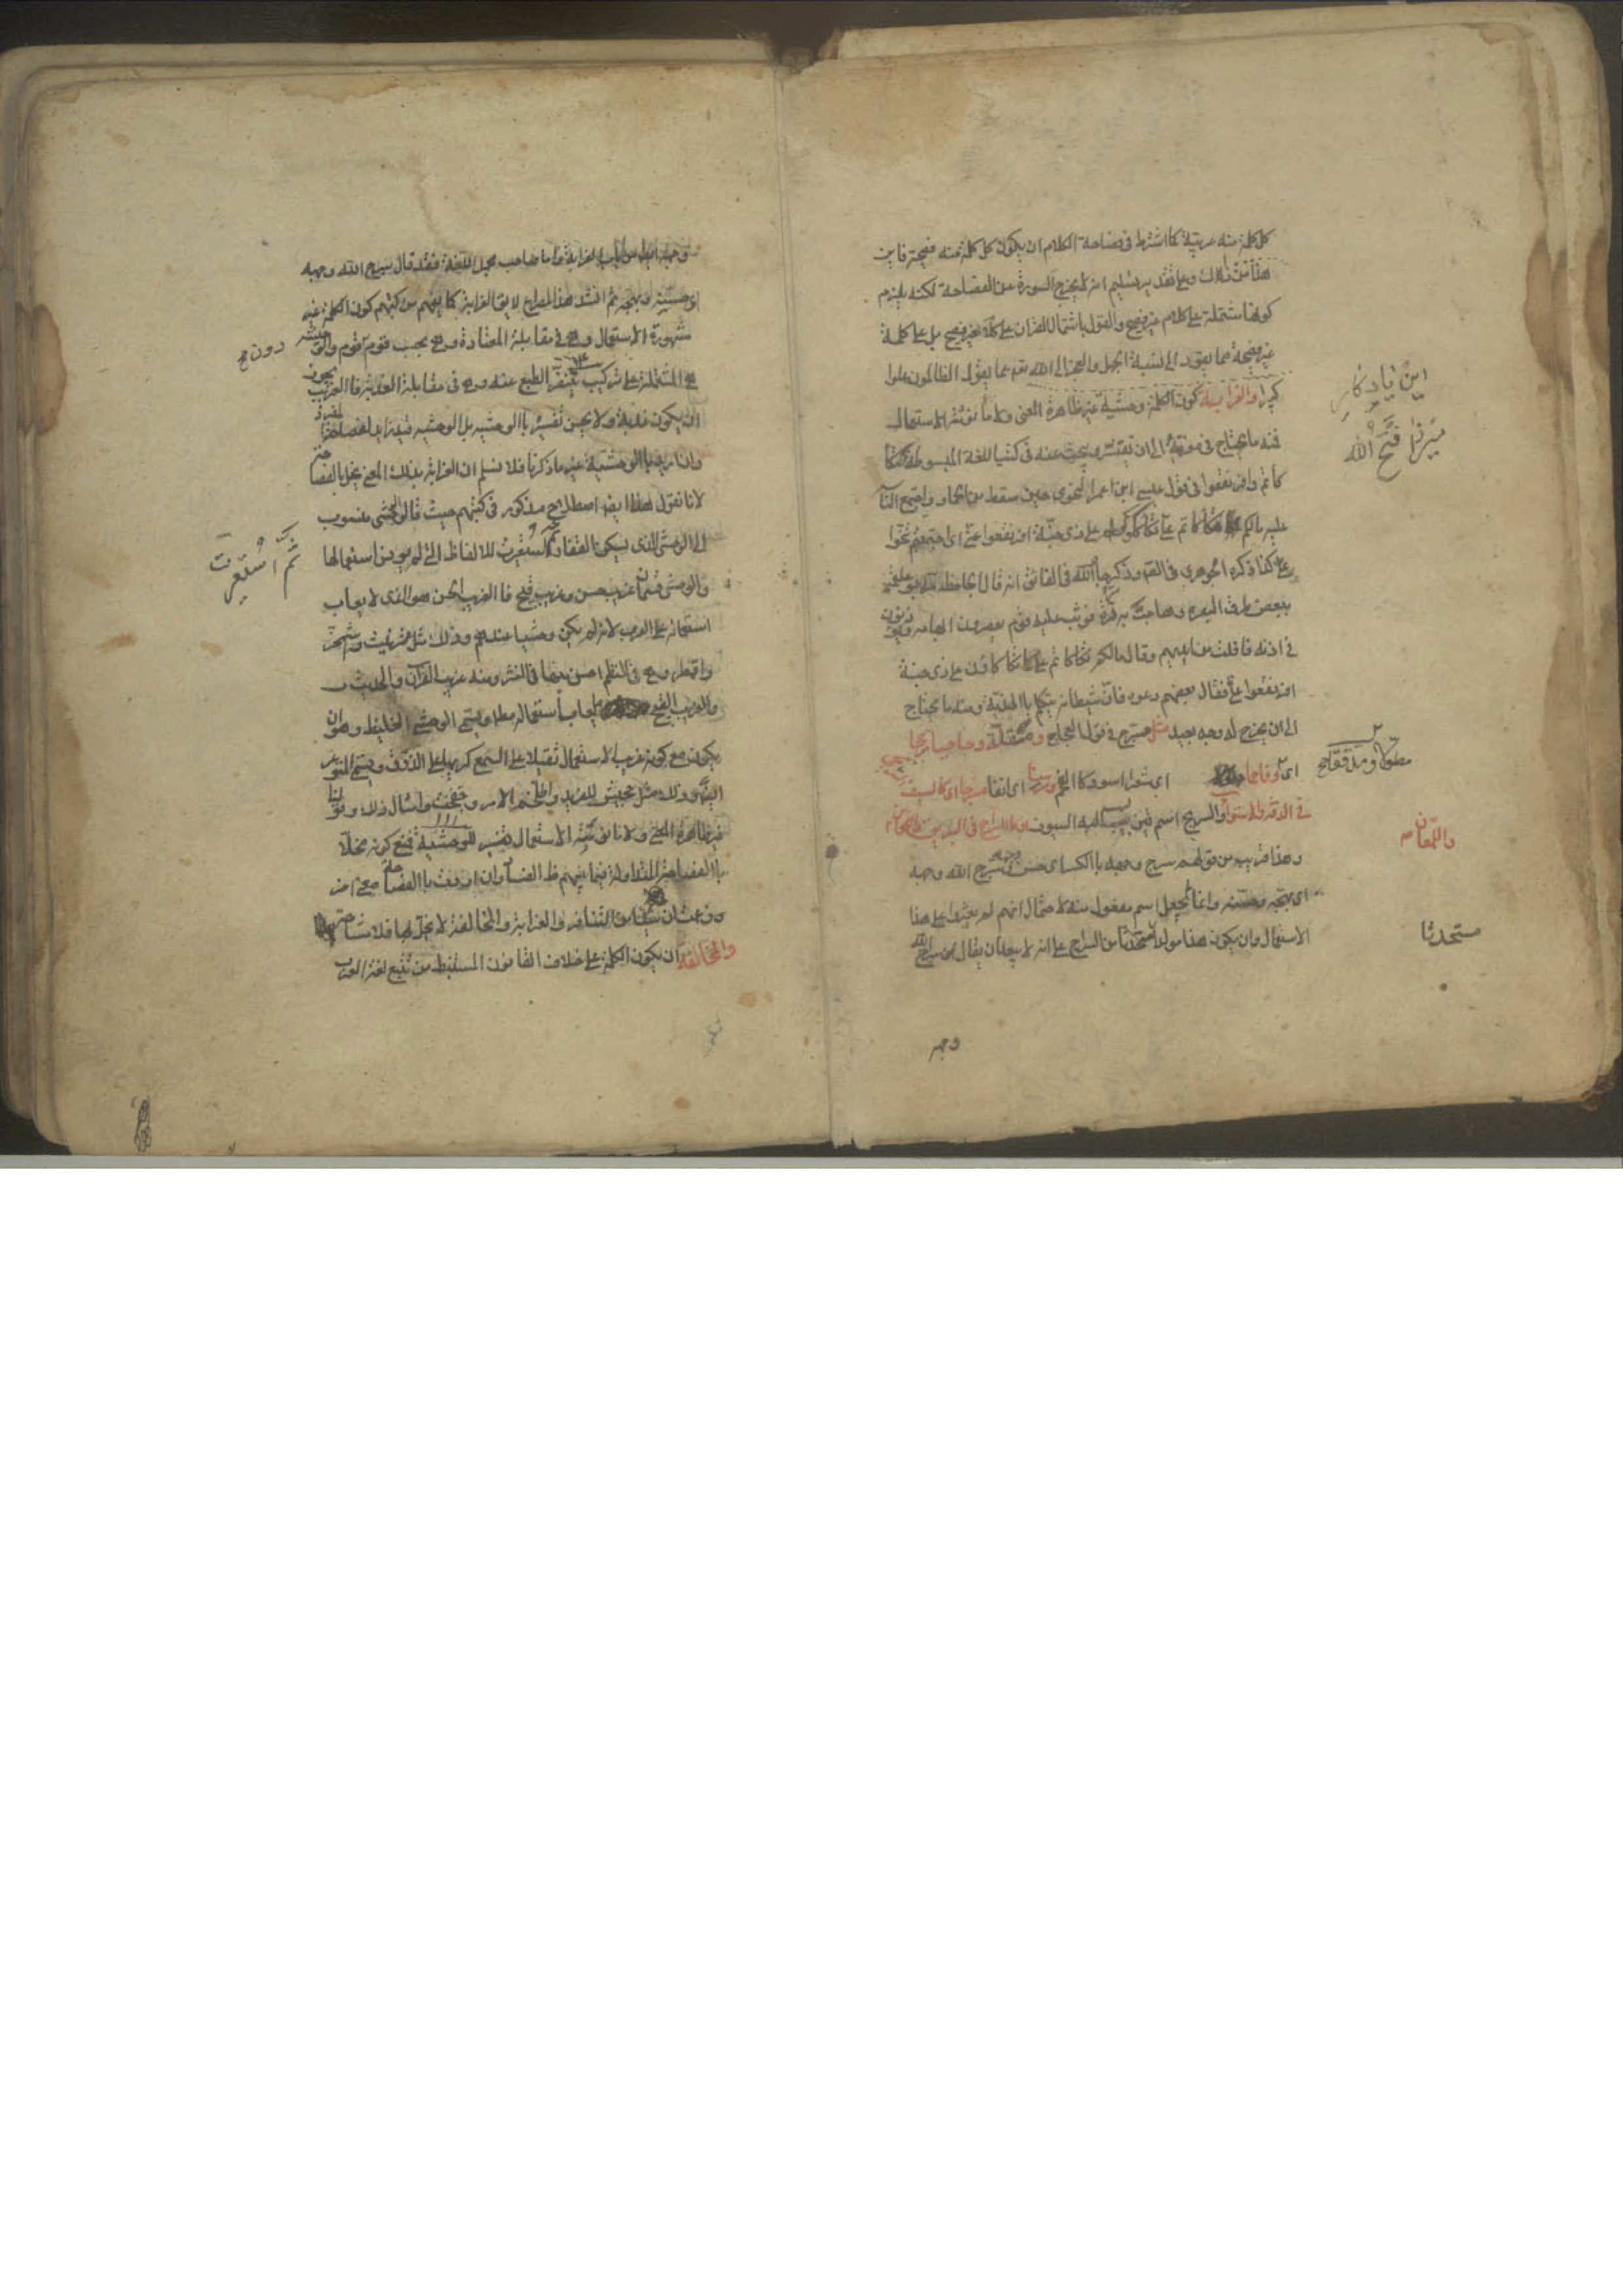 كل كلمة منه عربية كما اشترط فى فصاحة الكلام ان يكون كل كلمة منه فصيحة فاين
هذا من ذاك وعلى تقدير تسليم انه لا يخرج السورة عن الفصاحة لكنه يلزم
كونها مشتملة على كلام غير فصيح والقول باشتمال القران على كلام غير فصيح بل على كلمة
غير فصيحة مما يقود الى نسبة الجهل والعجز الى الله تعـ عما يقول الظالمون علوا
كبيرا والغرابة كون الكلمة وحشية غير ظاهرة المعنى ولا مأنوسة الاستعمال
فمنه ما يحتاج فى معرفته الى ان ينقر ويبحث عنه فى كتب اللغة المبسوطة كتكأ
كأتم وافرنقعوا فى قول عيسى ابن عمر النحوى حين سقط من الحمار واجتمع الناس
عليه مالكم تكأكأتم على تكأكؤكم على ذى جنة افرنقعوا عنى اى اجتمعتم تنحوا
عنى كذا ذكره الجوهرى فى الصحـ وذكر جار الله فى الفائق انه قال الجاحظ مر ابو علقمة
ببعض طرق البصرة وهاجت به مرة فوثب عليه قوم يعصرون ابهامه ويؤذنون
فى اذنه فافلت من ايديهم وقال مالكم تكأكأتم على كما تكأكأون على ذى جنة
افرنقعوا عنى فقال بعضهم دعوه فان شيطانه يتكلم بالهندية ومنه ما يحتاج
الى ان يخرج له وجه بعيد مثل مسرج فى قول العجاج ومقلة وحاجبا مزججا
اى وفاحما اى شعرا اسود كالفحم ومرسنا اى انفا مسرجا اى كالسيف
فى الدقة والاستواء والسريج اسم قين ينسب اليه السيوف او كالسراج فى البريق
وهذا قريب من قولهم سرج وجهه بالكسر اى حسن وسرج الله وجهه
اى بهجه وحسنه وانما لم يجعل اسم مفعول منه لاحتمال انهم لم يعثروا على هذا
الاستعمال وان يكون هذا مولدا مستحدثا من السراج على انه لا يبعد ان يقال ان سرج الله
وجهه
اين يادكار
ميرزا فتح الله
واللمعان
مستحدثا
وجهه ايضا من باب الغرابة واما صاحب مجمل اللغة فقد قال سرج الله وجهه
اى حسنه وبهجه ثم انشد هذا المصراع لا يق الغرابة كما يفهم من كتبهم كون الكلمة غير
مشهورة الاستعمال وهى فى مقابلة المعتادة وهى بحسب قوم دون قوم والوحشية
هى المشتملة على تركيب ينفر الطبع عنه وهى فى مقابلة العذبة فالغريب يجوز
ان يكون عذبة ولا يحسن تفسيره بالوحشية بل الوحشية قيد زايد لفصاحة المفرد
وان اريد بالوحشية غير ما ذكرنا فلا نسلم ان الغرابة بذلك المعنى يخل بالفصاحة
لانا نقول هذا ايضا اصطلاح مذكور فى كتبهم حيث قالوا الوحشى منسوب
الى الوحش الذى يسكن القفار ثم استعيرت للالفاظ التى لم يونس استعمالها
والوحشى قسمان غريب حسن وغريب قبيح فالغريب الحسن هو الذى لا يعاب
استعماله على العرب لانه لم يكن وحشيا عندهم وذلك مثل شرنبث واشمخر
واقمطر وهى فى النظم احسن منها فى النثر ومنه غريب القرآن والحديث
والغريب القبيح يعاب استعماله مطلقا ويسمى الوحشى الغليظ وهو ان
يكون مع كونه غريب الاستعمال ثقيلا على السمع كريها على الذوق ويسمى المتوعر
ايضا وذلك مثل جحيش للفريد واطلخم الامر وجفخت وامثال ذلك وقولنا
غير ظاهرة المعنى ولا مانوسة الاستعمال تفسير للوحشية فمنع كونه مخلا
بالفصاحة المتداولة فيما بينهم ظاهر الفساد وان اردت بالفصاحة معنى اخر
وزعمت ان شيئا من التنافر والغرابة والمخالفة لا يخل بها فلا مشاحة
والمخالفة ان يكون الكلمة على خلاف القانون المستنبط من تتبع لغة العرب
دون قوم
ثم استعيرت